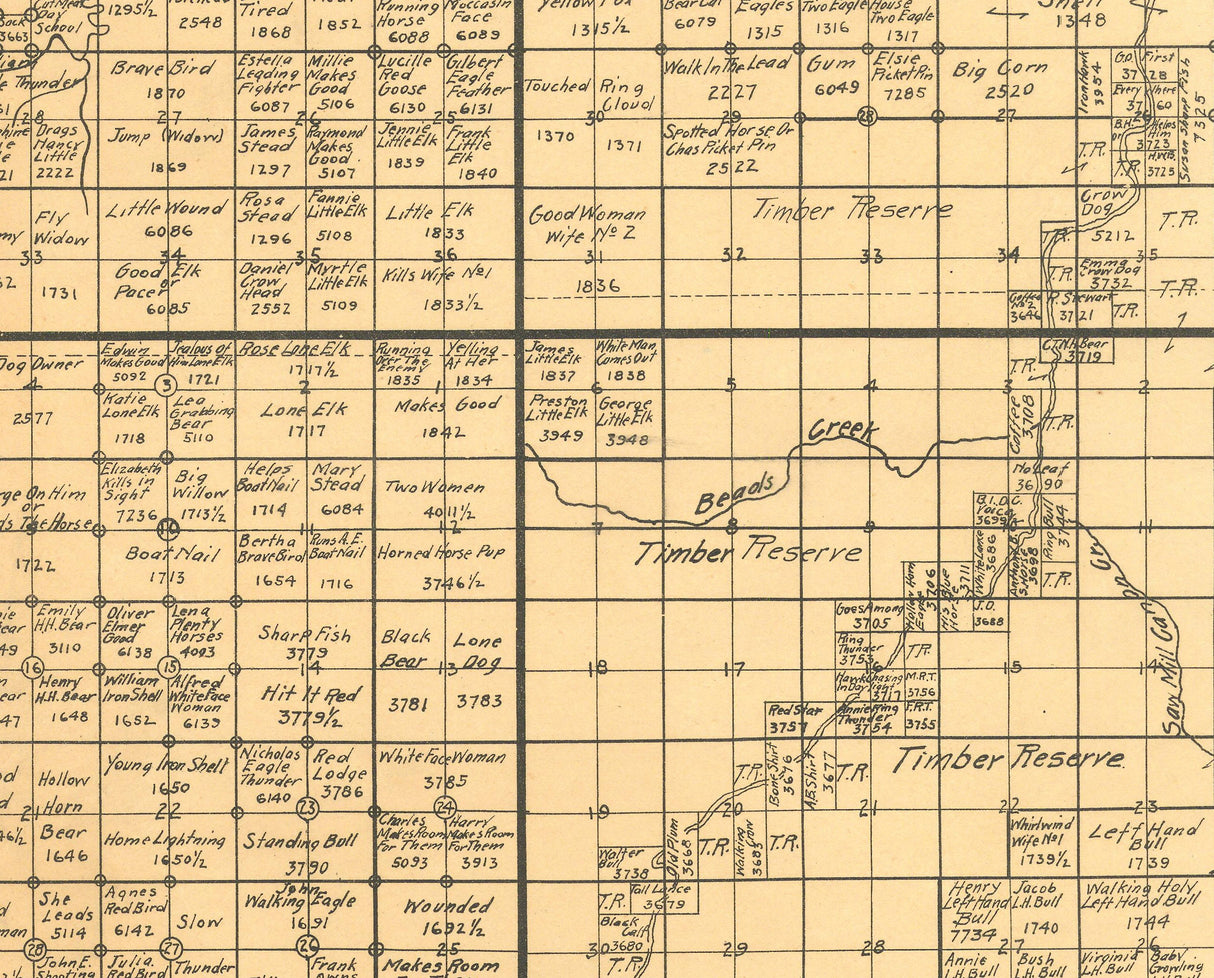 Cut Meat
Day
School
3663
1295½
2548
Tired
1868
1852
Running
Horse
6088
Moccasin
Face
6089
Yellow Fox
1315½
6079
Eagles
1315
Two Eagle
1316
House
Two Eagle
1317
Shell
1348
Thunder
Brave Bird
1870
Estella
Leading
Fighter
6087
Millie
Makes
Good
5106
Lucille
Red
Goose
6130
Gilbert
Eagle
Feather
6131
Touched
1370
Ring
Cloud
1371
Walk In The Lead
2227
Gum
6049
Elsie
Picket Pin
7285
Big Corn
2520
Iron Hawk
3954
G.D. First
37 28
Every Where
37 60
Susan Sharp Fish
7325
28
27
26
25
30
28
27
26
Drags
Nancy
Little
2222
Jump (Widow)
1869
James
Stead
1297
Raymond
Makes
Good
5107
Jennie
Little Elk
1839
Frank
Little
Elk
1840
Spotted Horse Or
Chas Picket Pin
2522
T.R.
Helps
Him
3723
T.R.
3725
Fly
Widow
Little Wound
6086
Rosa
Stead
1296
Fannie
Little Elk
5108
Little Elk
1833
Good Woman
Wife No 2
1836
Timber Reserve
Crow
Dog
5212
T.R.
T.R.
33
34
35
36
31
32
33
34
35
1731
Good Elk
or
Pacer
6085
Daniel
Crow
Head
2552
Myrtle
Little Elk
5109
Kills Wife No1
1833½
T.R.
Emma
Crow Dog
3732
T.R.
Coffee
No 2
3646
R. Stewart
3721
T.R.
Dog Owner
Edwin
Makes Good
5092
Jealous of
Him Lone Elk
1721
Rose Lone Elk
1717½
Running
Over The
Enemy
1835
Yelling
At Her
1834
James
Little Elk
1837
White Man
Comes Out
1838
C.T.N.H. Bear
3719
T.R.
4
3
2
1
6
5
4
3
2
2577
Katie
Lone Elk
1718
Lea
Grabbing
Bear
5110
Lone Elk
1717
Makes Good
1842
Preston
Little Elk
3949
George
Little Elk
3948
Creek
Coffee
3708
T.R.
On Him
or
The Horse
Elizabeth
Kills in
Sight
7236
Big
Willow
1713½
Helps
Boat Nail
1714
Mary
Stead
6084
Two Women
4011½
Beads
No Leaf
3690
B.I.D.C.
Voice
3699
Ring Bull
3744
9
10
11
12
7
8
9
11
1722
Boat Nail
1713
Bertha
Brave Bird
1654
Runs A.E.
Boat Nail
1716
Horned Horse Pup
3746½
Timber Reserve
Hollow Horn
Eagle
3706
His Blue
Horse
3711
White Lance
3686
3698
T.R.
Emily
H.H. Bear
3110
Oliver
Elmer
Good
6138
Lena
Plenty
Horses
4093
Sharp Fish
3779
Black
Bear
3781
Lone
Dog
3783
Goes Among
3705
J.D.
3688
Ring
Thunder
3753
T.R.
16
15
14
13
18
17
16
15
14
Henry
H.H. Bear
1648
William
Iron Shell
1652
Alfred
White Face
Woman
6139
Hit It Red
3779½
Hawk Chasing
In Day Light
3717
M.R.T.
3756
Red Star
3757
Annie Ring
Thunder
3754
F.R.T.
3755
Saw Mill Ca'nyon Cr.
Hollow
Horn
Bear
1646
Young Iron Shell
1650
Nicholas
Eagle
Thunder
6140
Red
Lodge
3786
White Face Woman
3785
T.R.
Bone Shirt
3676
A.B. Shirt
3677
T.R.
Timber Reserve
21
22
23
24
19
20
21
22
23
Home Lightning
1650½
Standing Bull
3790
Charles
Makes Room
For Them
5093
Harry
Makes Room
For Them
3913
Walter
Bull
3738
Old Plum
3668
T.R.
Walking Crow
3683
T.R.
Whirlwind
Wife No1
1739½
Left Hand
Bull
1739
She
Leads
5114
Agnes
Red Bird
6142
Slow
John
Walking Eagle
1691
Wounded
1692½
T.R.
Tall Lance
3679
Black
Calf
3680
Henry
Left Hand
Bull
7734
Jacob
L.H. Bull
1740
Walking Holy
Left Hand Bull
1744
28
27
26
25
30
29
28
27
26
John E.
Shooting
Julia
Red Bird
Thunder
Frank
Makes Room
T.R.
Annie
L.H. Bull
Bush
L.H. Bull
Virginia
L.H. Bull
Baby
Growling